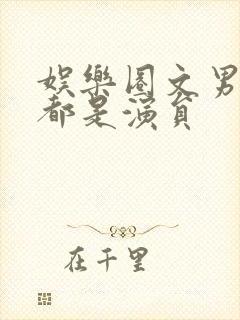 娛樂圈文男
都是演員
在千里